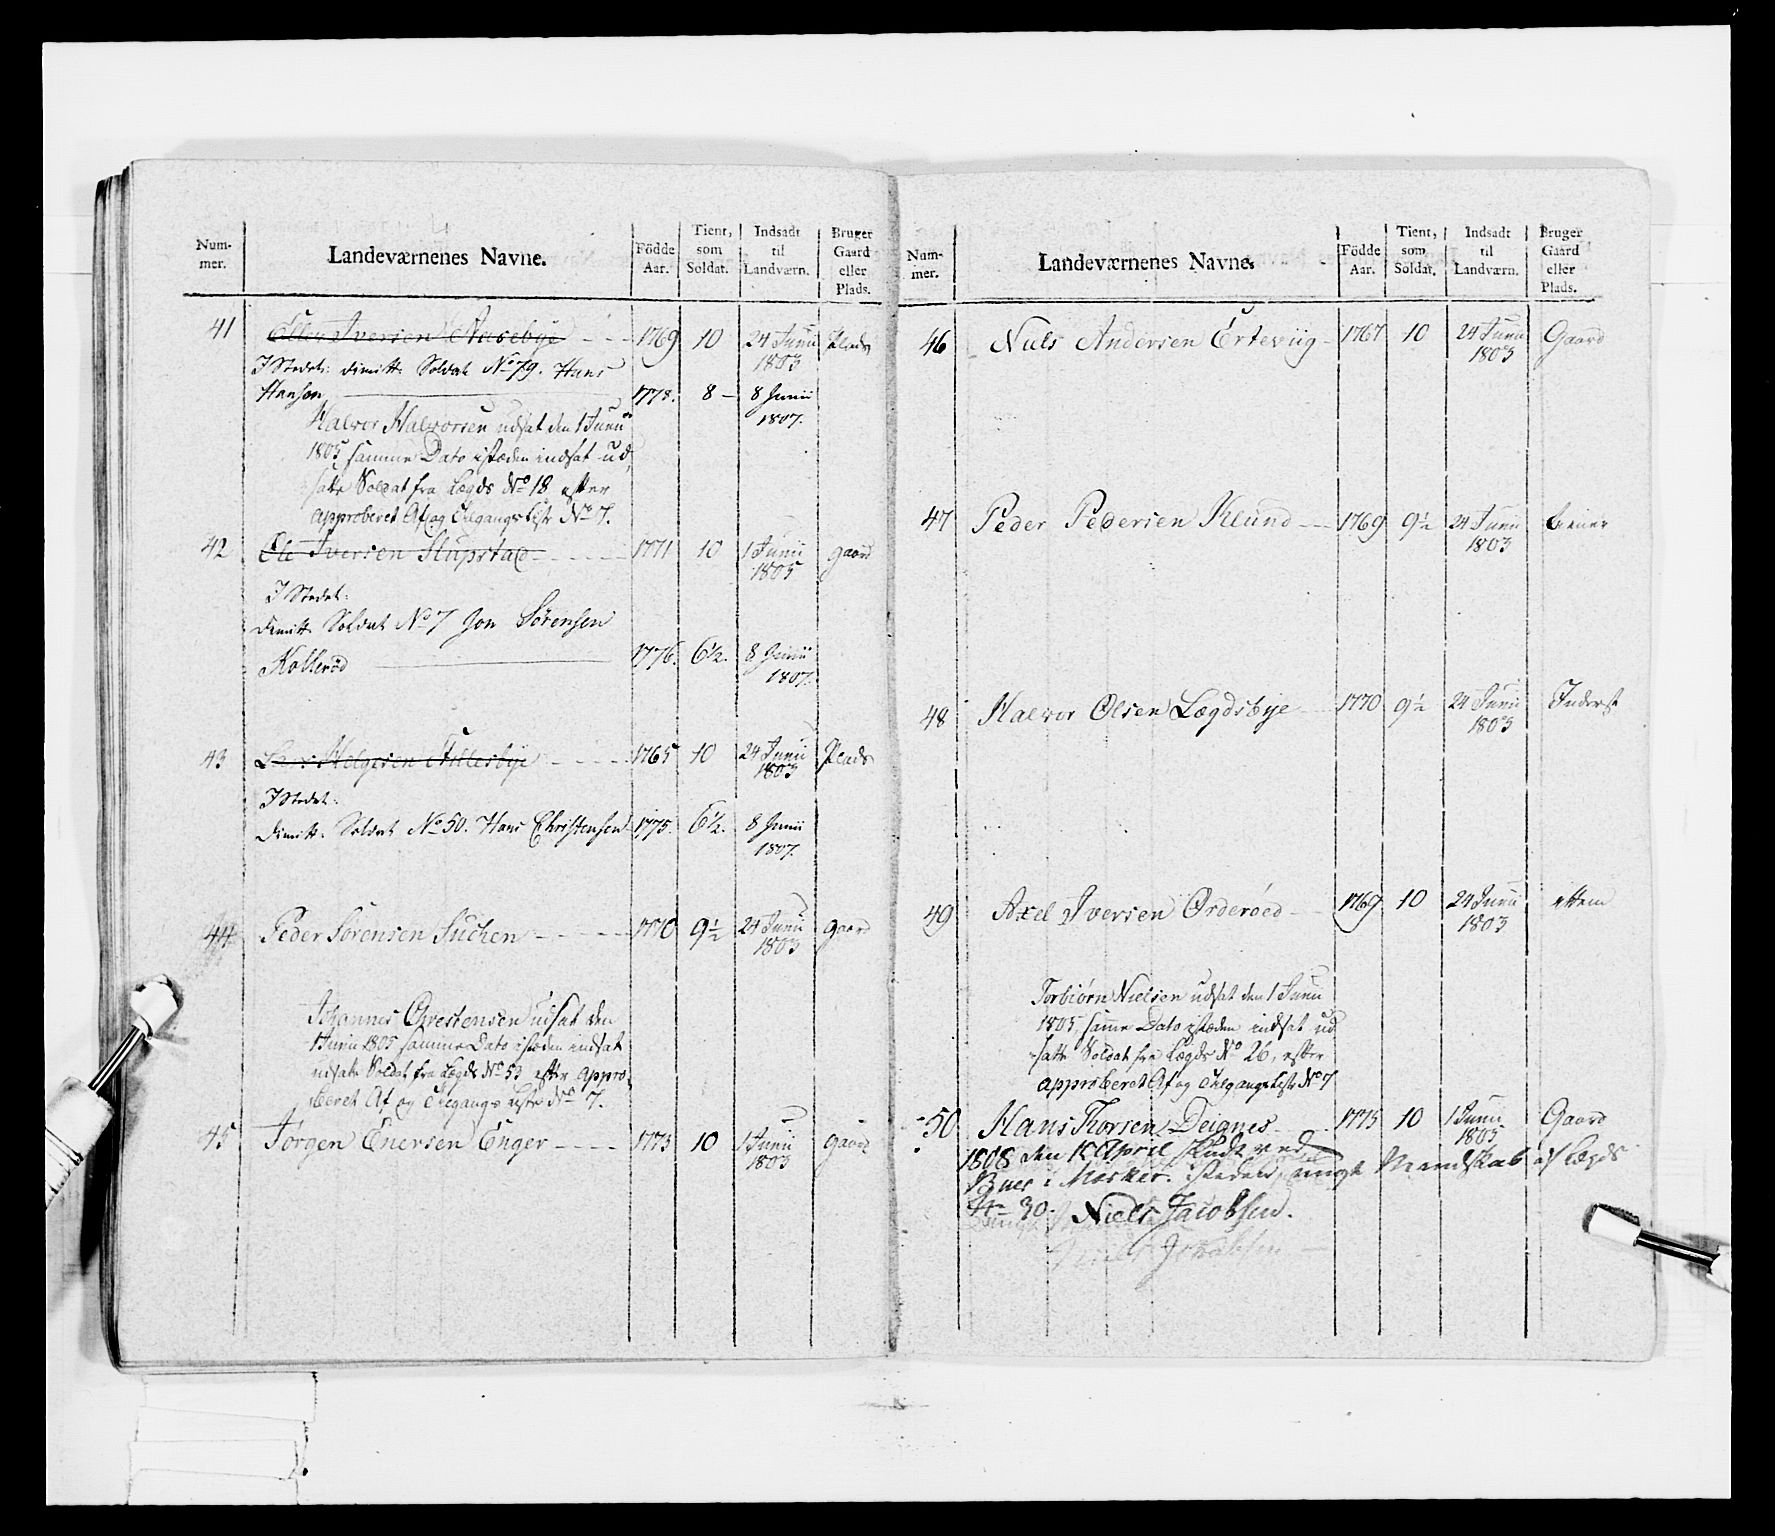 Num-mer. Landeværnenes Navne. Födde Aar. Tient, som Soldat. Indsadt til Landværn. Bruger Gaard eller Plads.
41 Iversen 1769 10 24 Junii 1803 Plads
I Stedet: dimitt. Soldat No 79. Hans
Hansen 1778. 8 – 8 Junii 1807.
Halvor Halvorsen udsat den 1 Junii
1805 samme Dato istæden indsat ud
satte Soldat fra Lægds No 18 efter
approberet Af og Tilgangs Liste No 7.
42 Ole Iversen Slupstad 1771 10 1 Junii 1805 gaard
I Stedet:
dimitt. Soldat No 7 Jon Sörensen
Kollerød 1776. 6½. 8 Junii 1807.
43 Helgesen 1765 10 24 Junii 1803 Plads
I Stedet:
dimitt. Soldat No 50. Hans Christensen 1775. 6½. 8 Junii 1807.
44 Peder Sörensen Suchen 1770 9½ 24 Junii 1803 gaard
Johannes Chrestensen udsat den
1 Junii 1805 samme Dato istæden indsat
udsatte Soldat fra Lægds No 53 efter appro-
beret Af og Tilgangs Liste No 7.
45 Jørgen Enersen Enger 1773 10 1 Junii 1803 gaard
Num-mer. Landeværnenes Navne. Födde Aar. Tient, som Soldat. Indsadt til Landværn. Bruger Gaard eller Plads.
46 Niels Andersen Erteviig 1767 10 24 Junii 1803 Gaard
47 Peder Pedersen Klund 1769 9½ 24 Junii 1803
48 Halvor Olsen Lægdsbye 1770 9½ 24 Junii 1803 Inderst
49 Axel Iversen Orderöed 1769 10 24 Junii 1803
Torbiörn Nielsen udsat den 1 Junii
1805, samme Dato istæden indsat ud
satte Soldat fra Lægds No 26, efter
approberet Af og Tilgangs Liste No 7
50 Hans Thorsen Deignes 1775 10 1 Junii 1803 Gaard
1808 den April Skudt ved
i istedet ungt Mandskab af Lægds
No 30. Niels Jacobsen.
Niels Jacobsen